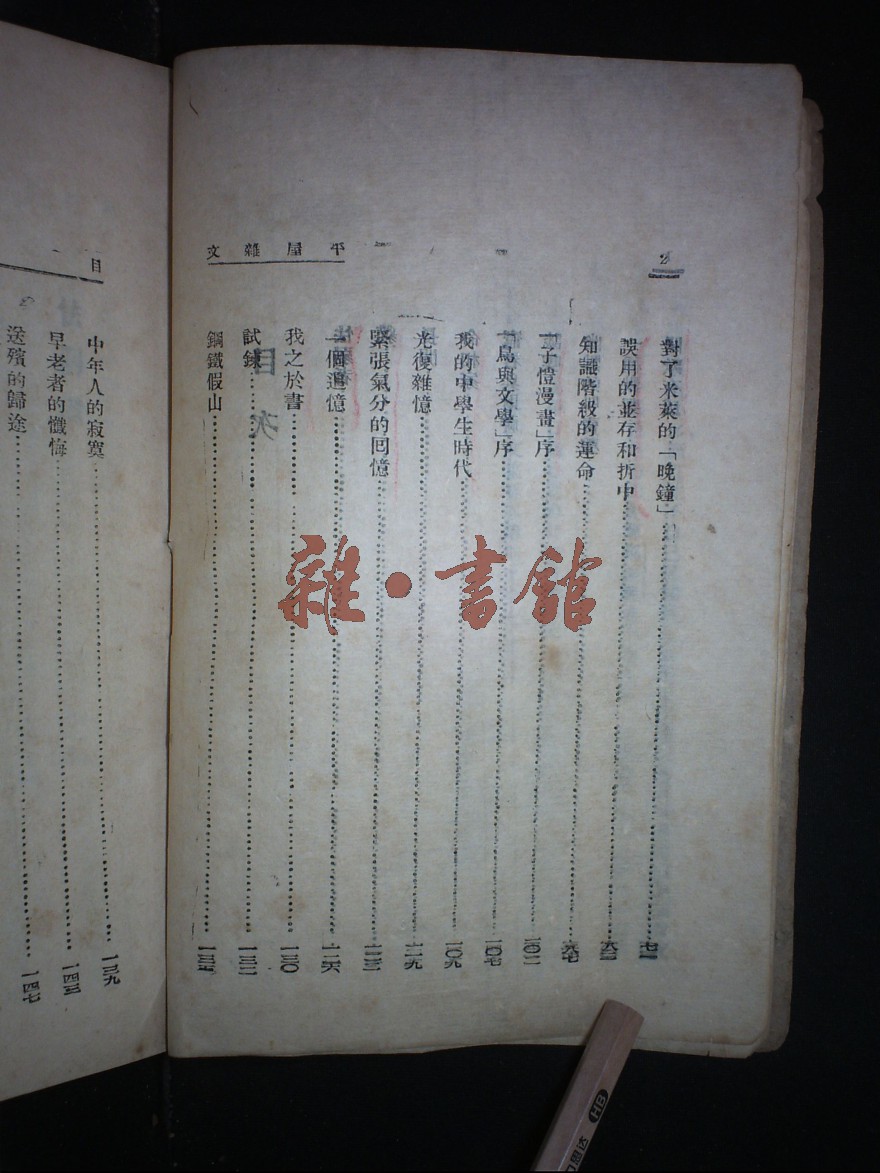 平屋雜文
2
對了米萊的「晚鐘」
誤用的並存和折中
知識階級的運命
「子愷漫畫」序……一〇二
「鳥與文學」序……一〇七
我的中學生時代……一〇九
光復雜憶……一一九
緊張氣分的回憶……一二三
一個追憶……一二六
我之於書……一三〇
試鍊……一三二
鋼鐵假山……一三五
目次
目
中年人的寂寞……一三九
早老者的懺悔……一四三
送殯的歸途……一四七
雜·書館
HB